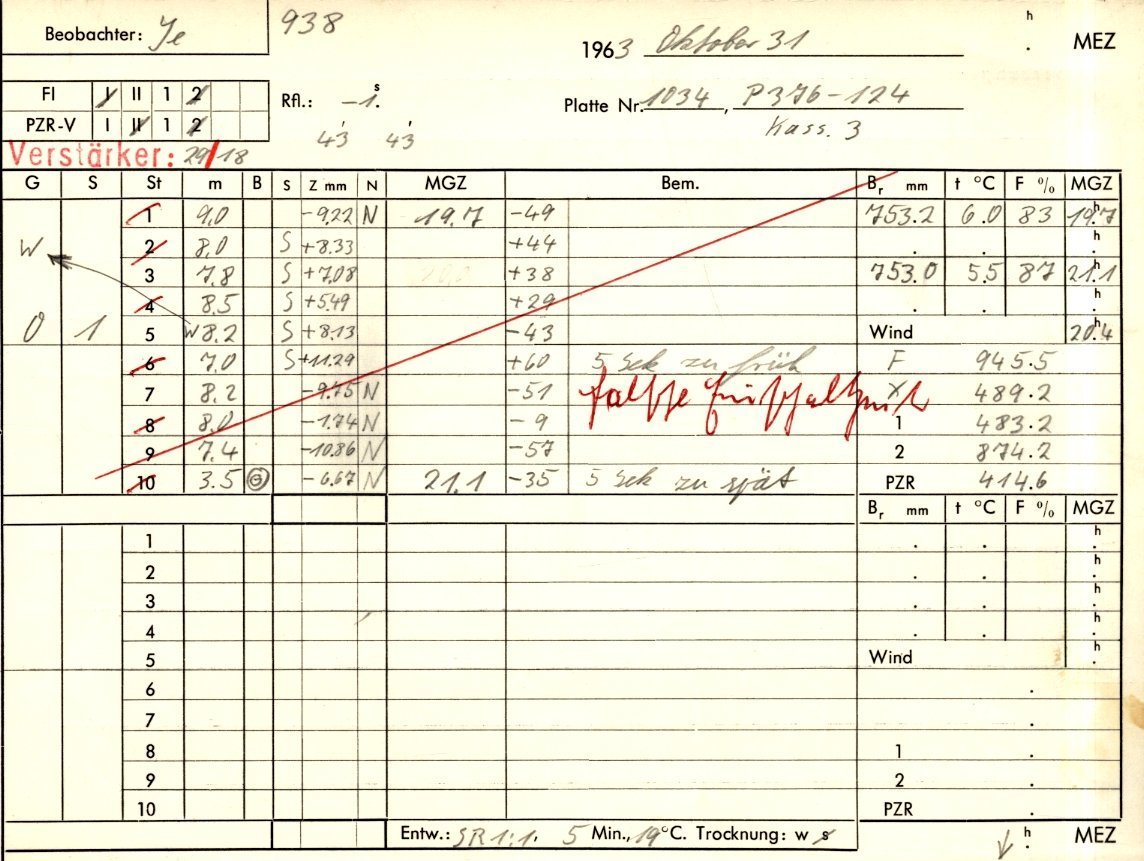 Beobachter: Je 938 1963 Oktober 31 h . MEZ
FI I II 1 2 Rfl.: -1 s . Platte Nr. 1034, P376-124
PZR-V I II 1 2 43 43 Kass. 3
Verstärker: 29/18
G S St m B S Z mm N MGZ Bem. Br mm t °C F % MGZ
1 9.0 -9.22 N 19.7 -49 753.2 6.0 83 19h.7
W 2 8.0 S +8.33 +44 . . h
3 7.8 S +7.08 +38 753.0 5.5 87 21h.1
4 8.5 S +5.49 +29 . . h
0 1 5 W 8.2 S +8.13 -43 Wind 20h.4
6 7.0 S +11.29 +60 5 Sek zu früh F 945.5
7 8.2 -9.75 N -51 falsche X 489.2
8 8.0 -1.74 N -9 1 483.2
9 7.4 -10.86 N -57 2 874.2
10 3.5 G -6.67 N 21.1 -35 5 Sek zu spät PZR 414.6
Br mm t °C F % MGZ
1 . . h .
2 . . h .
3 . . h .
4 . . h .
5 Wind h .
6 .
7 .
8 1 .
9 2 .
10 PZR .
Entw.: SR 1:1, 5 Min., 19°C. Trocknung: w s h . MEZ